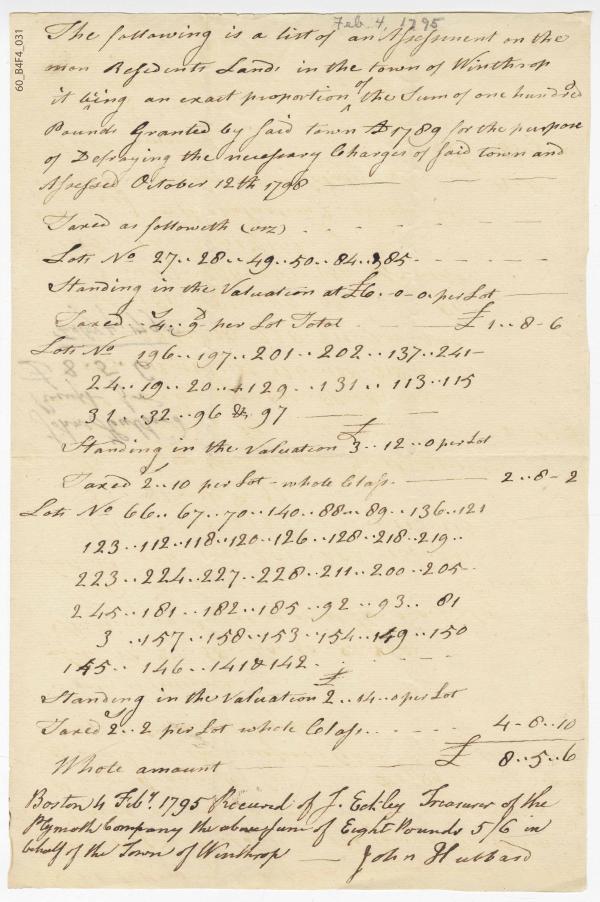 Feb. 4, 1795
60_B4F4_031
The following is a list of an Assessment on the
non Residents Lands in the town of Winthrop
it being an exact proportion of the Sum of one hundred
Pounds Granted by said town AD 1789 for the purpose
of Defraying the necessary Charges of said town and
Assessed October 12th 1798
Taxed as followeth (viz)
Lots No 27..28..49..50..84..&85
Standing in the Valuation at £6..0-0 per Lot
Taxed 4..9 per Lot Total £1..8-6
Lots No 196..197..201..202..137..241
24..19..20..129..131..113..115
31..32..96 & 97
Standing in the Valuation £3..12..0 per Lot
Taxed 2..10 per Lot - whole Class 2..8-2
Lots No 66..67..70..140..88..89..136..121
123..112..118..120..126..128..218..219..
223..224..227..228..211..200..205
245..181..182..185..92..93..81
3..157..158..153..154..149..150
145..146..141 & 142
Standing in the Valuation £2..14..0 per Lot
Taxed 2..2 per Lot whole Class 4-8..10
Whole amount £8..5..6
Boston 4 Feby. 1795 Received of J. Eckley Treasurer of the
Plymoth Company the above sum of Eight Pounds 5/6 in
behalf of the Town of Winthrop — John Hubbard